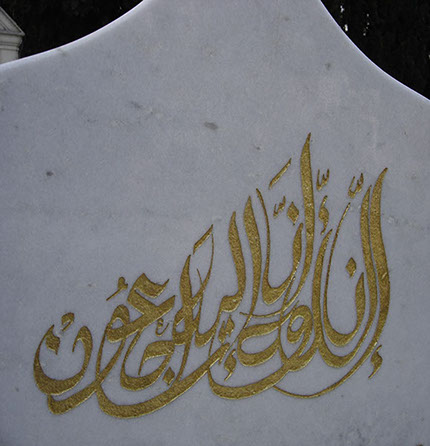 إنّا لله وإنّا إليه راجعون